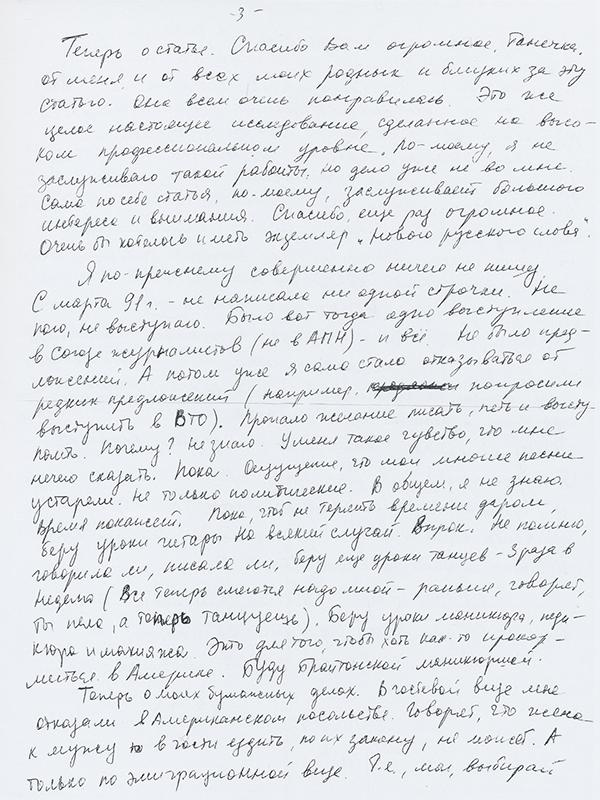 -3-
Теперь о статье. Спасибо Вам огромное, Танечка,
от меня и от всех моих родных и близких за эту
статью. Она всем очень понравилась. Это же
целое настоящее исследование, сделанное на высо-
ком профессиональном уровне. По-моему, я не
заслуживаю такой работы, но дело уже не во мне.
Сама по себе статья, по-моему, заслуживает большого
интереса и внимания. Спасибо, еще раз огромное.
Очень бы хотелось иметь экземпляр „Нового русского слова".
Я по-прежнему совершенно ничего не пишу.
С марта 91 г. - не написала ни одной строчки. Не
пою, не выступаю. Было вот тогда одно выступление
в Союзе журналистов (не в АПН) - и всё. Не было пред-
ложений. А потом уже я сама стала отказываться от
редких предложений (например, попросили
выступить в ВТО). Пропало желание писать, петь и высту-
пать. Почему? Не знаю. У меня такое чувство, что мне
нечего сказать. Пока. Ощущение, что мои многие песни
устарели. Не только политические. В общем, я не знаю.
Время покажет. Пока, чтоб не терять времени даром,
беру уроки гитары на всякий случай. Впрок. Не помню,
говорила ли, писала ли, беру еще уроки танцев - 3 раза в
неделю (Все теперь смеются надо мной - раньше, говорят,
ты пела, а теперь танцуешь). Беру уроки маникюра, педи-
кюра и макияжа. Это для того, чтобы хоть как-то прокор-
миться в Америке. Буду Брайтонской маникюршей.
Теперь о моих бумажных делах. В гостевой визе мне
отказали в Американском посольстве. Говорят, что жена
к мужу в гости ездить, по их закону, не может. А
только по эмиграционной визе. Т.е., мол, выбирай